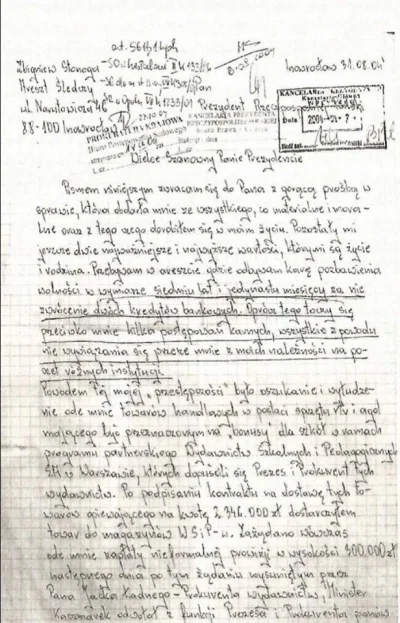 art. 561§1 kpk
Zbigniew Stonoga
Areszt Śledczy
ul. Narutowicza 46
88-100 Inowrocław
Inowrocław 31.08.04
KANCELARIA
Data 2004-
PROKURATURA KRAJOWA
KANCELARIA PREZYDENTA
RZECZYPOSPOLITEJ POLSKIEJ
Prezydent Rzeczpospolitej Polski
Wielce Szanowny Panie Prezydencie
Pismem niniejszym zwracam się do Pana z gorącą prośbą w
sprawie, która obdarła mnie ze wszystkiego, co materialne i moral-
ne oraz z tego czego dorobiłem się w moim życiu. Pozostały mi
jeszcze dwie najważniejsze i najwyższe wartości, którymi są życie
i rodzina. Przebywam w areszcie gdzie odbywam karę pozbawienia
wolności w wymiarze siedmiu lat i jedynastu miesięcy za nie
zwrócenie dwóch kredytów bankowych. Oprócz tego toczy się
przeciwko mnie kilka postępowań karnych, wszystkie z powodu
nie wywiązania się przeze mnie z moich należności na po-
czet różnych instytucji.
Powodem tej mojej "przestępczości" było oszukanie i wyłudze-
nie ode mnie towarów handlowych w postaci sprzętu rtv i agd
mającego być przeznaczonym na "bonusy" dla szkół w ramach
programu partnerskiego Wydawnictw Szkolnych i Pedagogicznych
SA w Warszawie, których dopuścili się Prezes i Prokurent tych
wydawnictw. Po podpisaniu kontraktu na dostawę tych to-
warów opiewającego na kwotę 2.346.000 zł dostarczyłem
towar do magazynów WSiP-u. Zażądano wówczas
ode mnie zapłaty nieformalnej prowizji w wysokości 300.000 zł
następnego dnia po tym żądaniu wysuniętym przez
Pana Jacka Ładnego - Prokurenta wydawnictw, Minister
Kaczmarek odwołał z funkcji Prezesa i Prokurentów panów